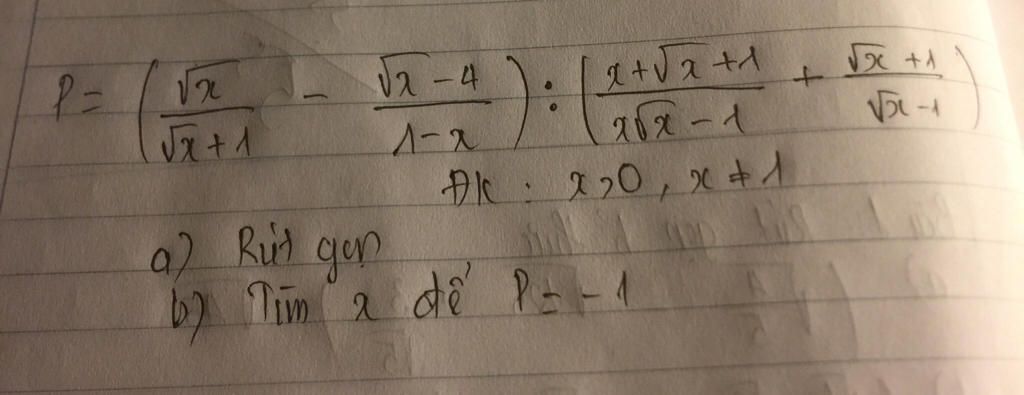 P = (√x/(√x+1) - (√x-4)/(1-x)) : ((x+√x+1)/(x√x-1) + (√x+1)/(√x-1))
ĐK : x>0, x≠1
a) Rút gọn
b) Tìm x để P = -1